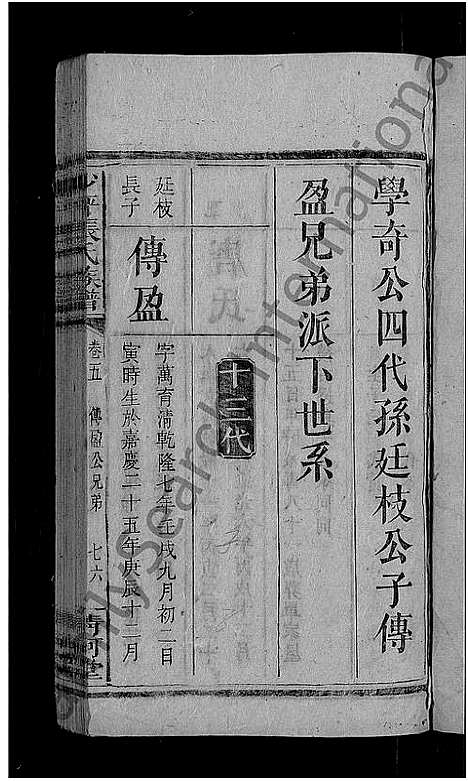 學奇公四代孫廷枝公子傳
盈兄弟派下世系
十三代
廷枝
長子
傳盈
字萬育清乾隆七年壬戌九月初二日
寅時生於嘉慶二十五年庚辰十二月
坪張氏族譜
卷五
傳盈公兄弟
七六
清河堂
MySearch International